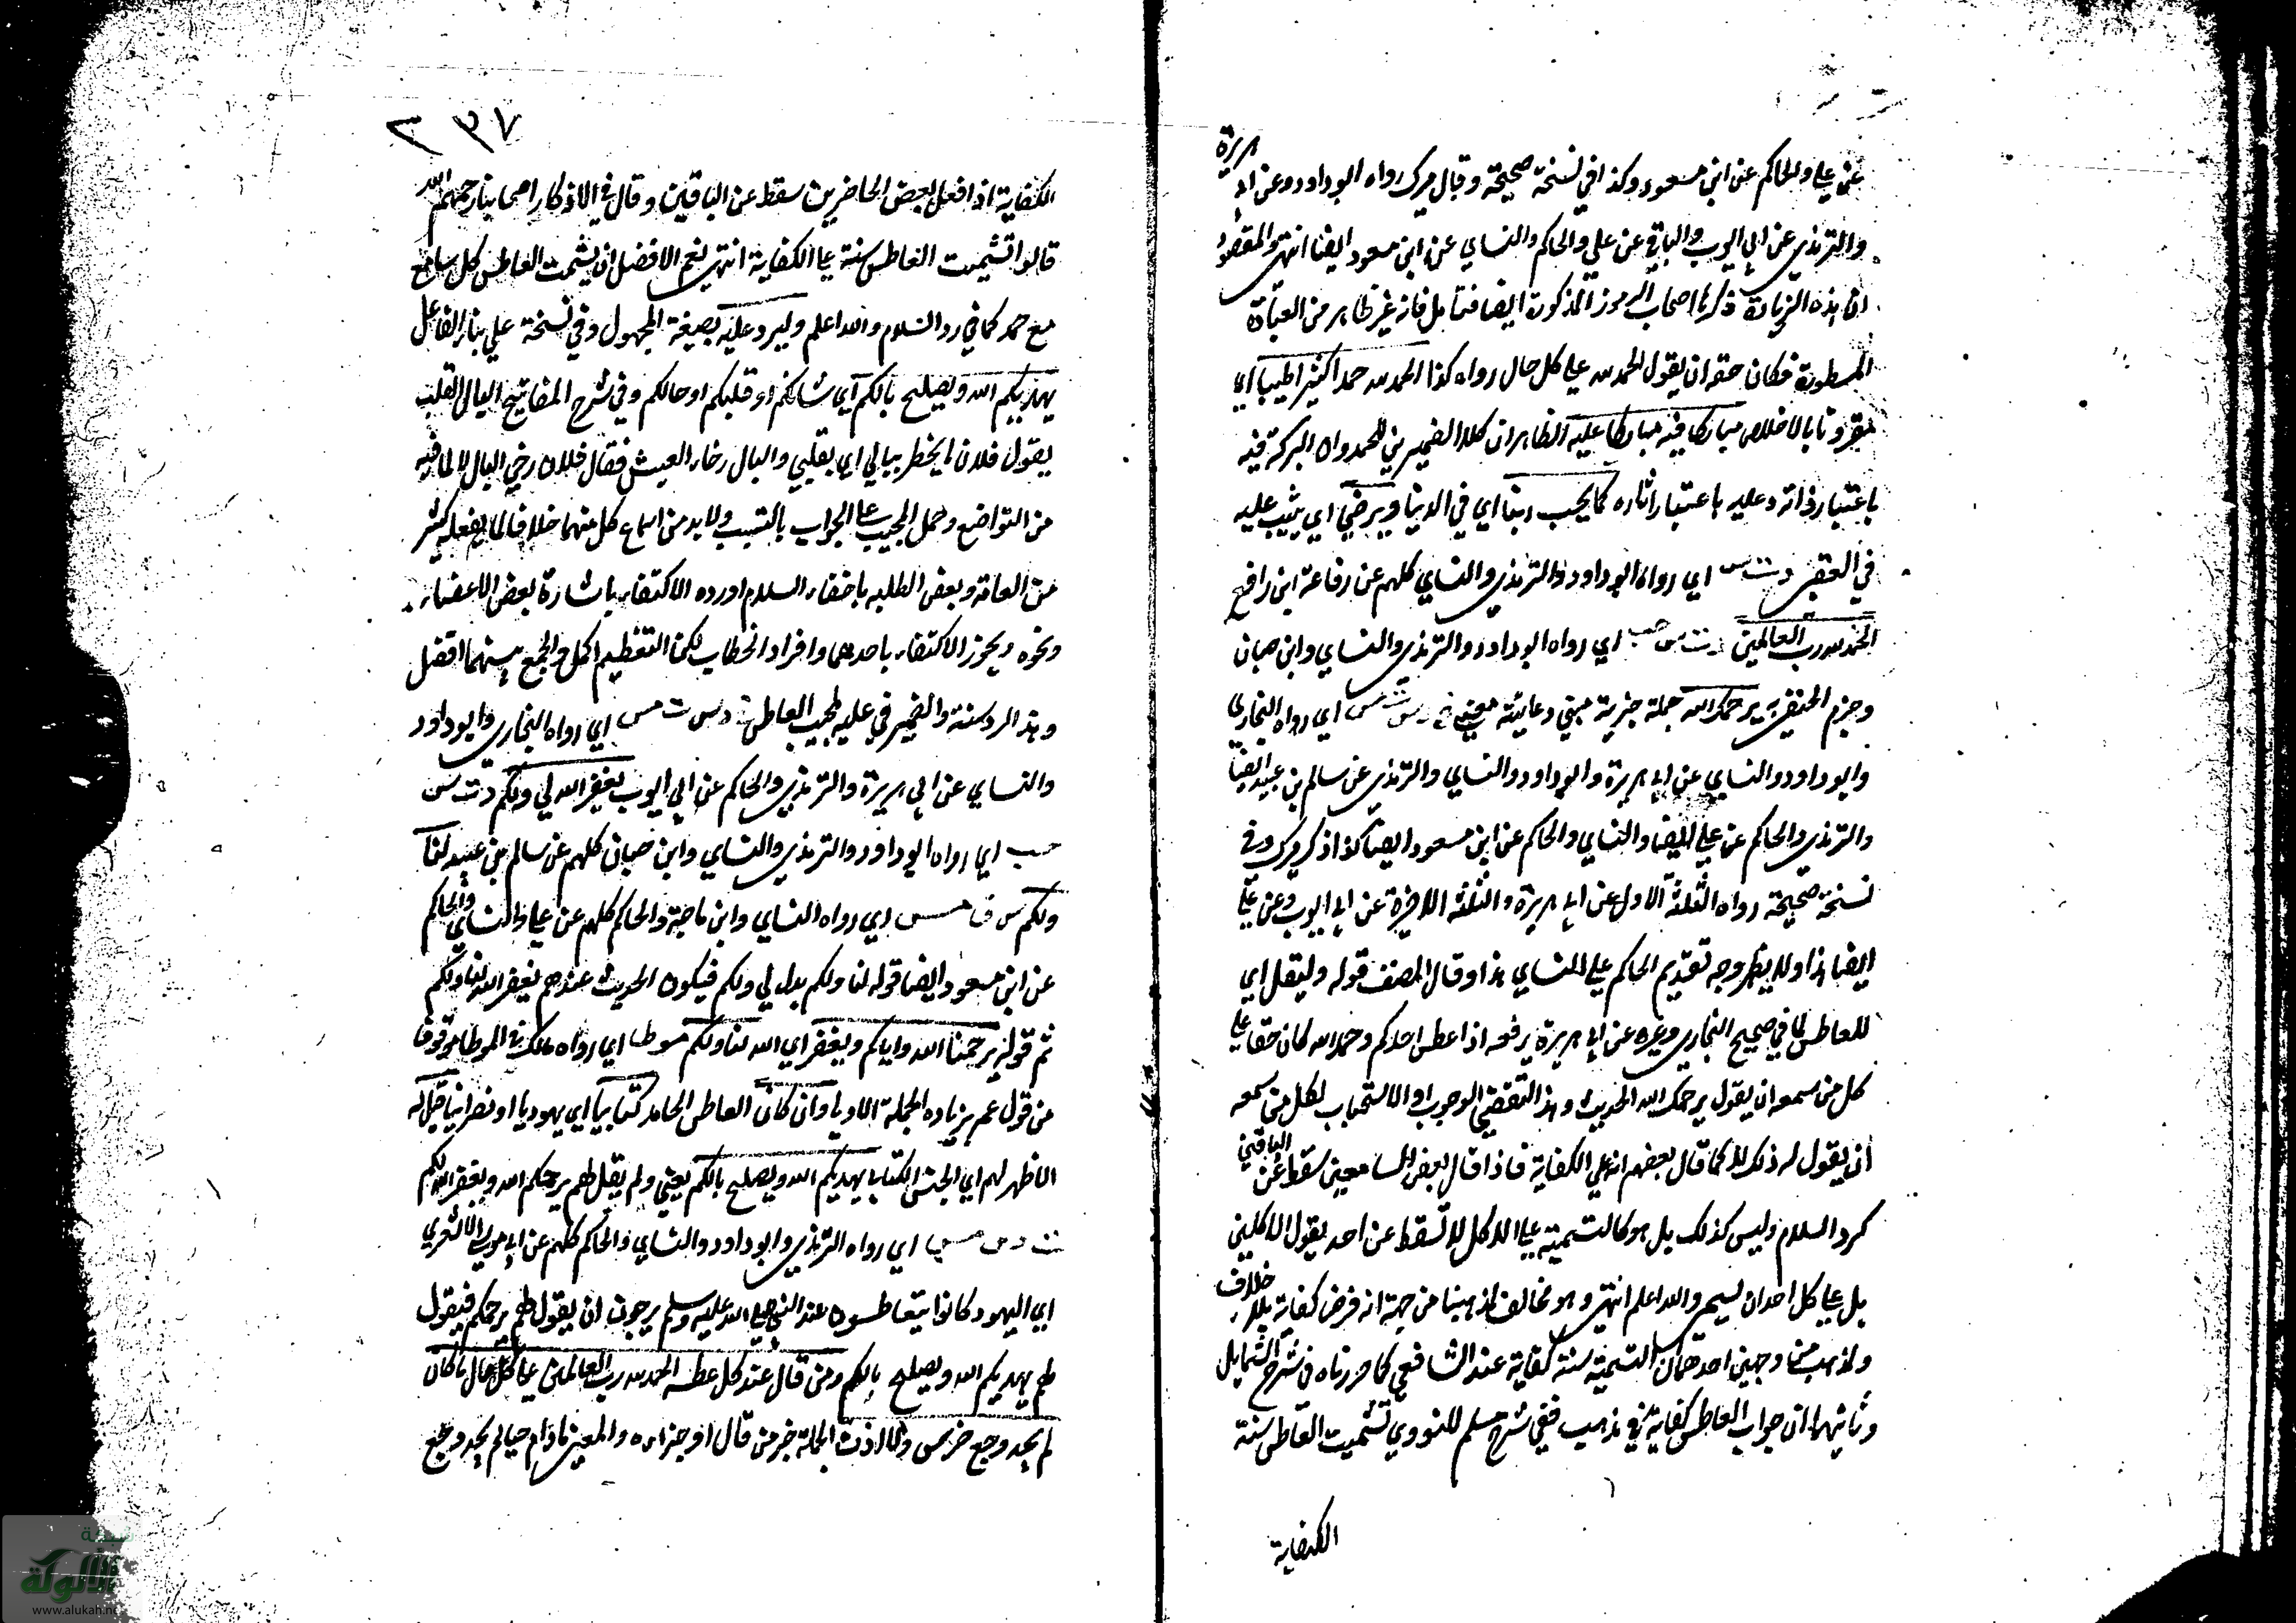 عن علي والحاكم عن ابن مسعود وكذا في نسخة صحيحة وقال ميرك رواه ابو داود وعن ابي هريرة
والترمذي عن ابي ايوب والباقي عن علي والحاكم والنساي عن ابن مسعود ايضا انتهى والمقصود
ان هذه الزيادة ذكرها اصحاب الرموز المذكورة ايضا فتامل فانه غير ظاهر من العبارة
المسطورة فكان حقه ان يقول الحمد لله على كل حال رواه كذا الحمد لله حمدا كثيرا طيبا اي
مقرونا بالاخلاص مباركا فيه مباركا عليه الظاهر ان كلا الضميرين للحمد وان البركة فيه
باعتبار ذاته وعليه باعتبار اثاره كما يحب ربنا اي في الدنيا ويرضى اي يثيب عليه
في العقبى د ت س اي رواه ابو داود والترمذي والنساي كلهم عن رفاعة ابن رافع
الحمد لله رب العالمين د ت س حب اي رواه ابو داود والترمذي والنساي وابن حبان
وجزم الحنفي به يرحمك الله جملة خبرية مبنى دعائية معنى خ د س ت س مس اي رواه البخاري
وابو داود والنساي عن ابي هريرة وابو داود والنساي والترمذي عن سالم بن عبيد ايضا
والترمذي والحاكم عن علي ايضا والنساي والحاكم عن ابن مسعود ايضا كذا ذكر ميرك وفي
نسخة صحيحة رواه الثلثة الاول عن ابي هريرة والثلثة الاخيرة عن ابي ايوب وعن علي
ايضا هذا ولا يظهر وجه تقديم الحاكم على النساي هذا وقال المصنف قوله وليقل اي
للعاطس لما في صحيح البخاري وغيره عن ابي هريرة يرفعه اذا عطس احدكم وحمد الله كان حقا على
كل من سمعه ان يقول يرحمك الله الحديث وهذا التقضي الوجوب او الاستحباب لكل من سمعه
ان يقول له ذلك لا كما قال بعضهم انه على الكفاية فاذا قال بعض السامعين سقط عن الباقين
كرد السلام وليس كذلك بل هو كالتسمية على الاكل لا تسقط عن احد بقول الاكلين
بل على كل احد ان يسمي والله اعلم انتهى وهو مخالف لمذهبنا من جهة انه فرض كفاية بلا خلاف
ولمذهبه من وجهين احدهما ان التسمية سنة كفاية عند الشافعي كما حررناه في شرح الشمايل
وثانيهما ان جواب العاطس كفاية في مذهبه ففي شرح مسلم للنووي تشميت العاطس سنة
الكفاية
٢٣٧
الكفاية اذا فعل بعض الحاضرين سقط عن الباقين وقال في الاذكار اصحابنا رحمهم الله
قالوا تشميت العاطس سنة على الكفاية انتهى نعم الافضل ان يشمت العاطس كل سامع
مع حمد كما في رد السلام والله اعلم وليرد عليه بصيغة المجهول وفي نسخة على بناء الفاعل
يهديكم الله ويصلح بالكم اي شانكم او قلبكم او حالكم وفي شرح المفاتيح البال القلب
يقول فلان ما يخطر ببالي اي بقلبي والبال رخاء العيش فقال فلان رخي البال لما فيه
من التواضع وحمل المجيب على الجواب بالتسبب ولا بد من اسماع كل منهما خلافا لما يفعله كثير
من العامة وبعض الطلبة باخفاء السلام او رده الاكتفاء باشارة بعض الاعضاء
ونحوه ويجوز الاكتفاء باحدهما وافراد الخطاب لكن التعظيم اكمل والجمع بينهما افضل
وهذا الرد سنة والضمير في عليه لمجيب العاطس خ د س ت مس اي رواه البخاري وابو داود
والنساي عن ابي هريرة والترمذي والحاكم عن ابي ايوب يغفر الله لي ولكم د ت س
حب اي رواه ابو داود والترمذي والنساي وابن حبان كلهم عن سالم بن عبيد لنا
ولكم س ق مس اي رواه النساي وابن ماجة والحاكم كلهم عن علي والنساي والحاكم
عن ابن مسعود ايضا قوله لنا ولكم بدل لي ولكم فيكون الحديث عندهم يغفر الله لنا ولكم
ثم قوله يرحمنا الله واياكم ويغفر اي الله لنا ولكم موطا اي رواه مالك في الموطا موقوفا
من قول عمر بزيادة الجملة الاولى وان كان العاطس الحامد كتابيا اي يهوديا او نصرانيا قيل له
الاظهر لهم اي الجنس الكتابي يهديكم الله ويصلح بالكم يعني ولم يقل لهم يرحمكم الله ويغفر الله لكم
ت د س مس اي رواه الترمذي وابو داود والنساي والحاكم كلهم عن ابي موسى الاشعري
اي اليهود كانوا يتعاطسون عند النبي صلى الله عليه وسلم يرجون ان يقول لهم يرحمكم فيقول
لهم يهديكم الله ويصلح بالكم ومن قال عند كل عطسة الحمد لله رب العالمين على كل حال ما كان
لم يجد وجع ضرس ولا اذن الجملة خبر من قال او جزاءه والمعنى مادام حيا لم يجد وجع
شبكة
الألوكة
www.alukah.net